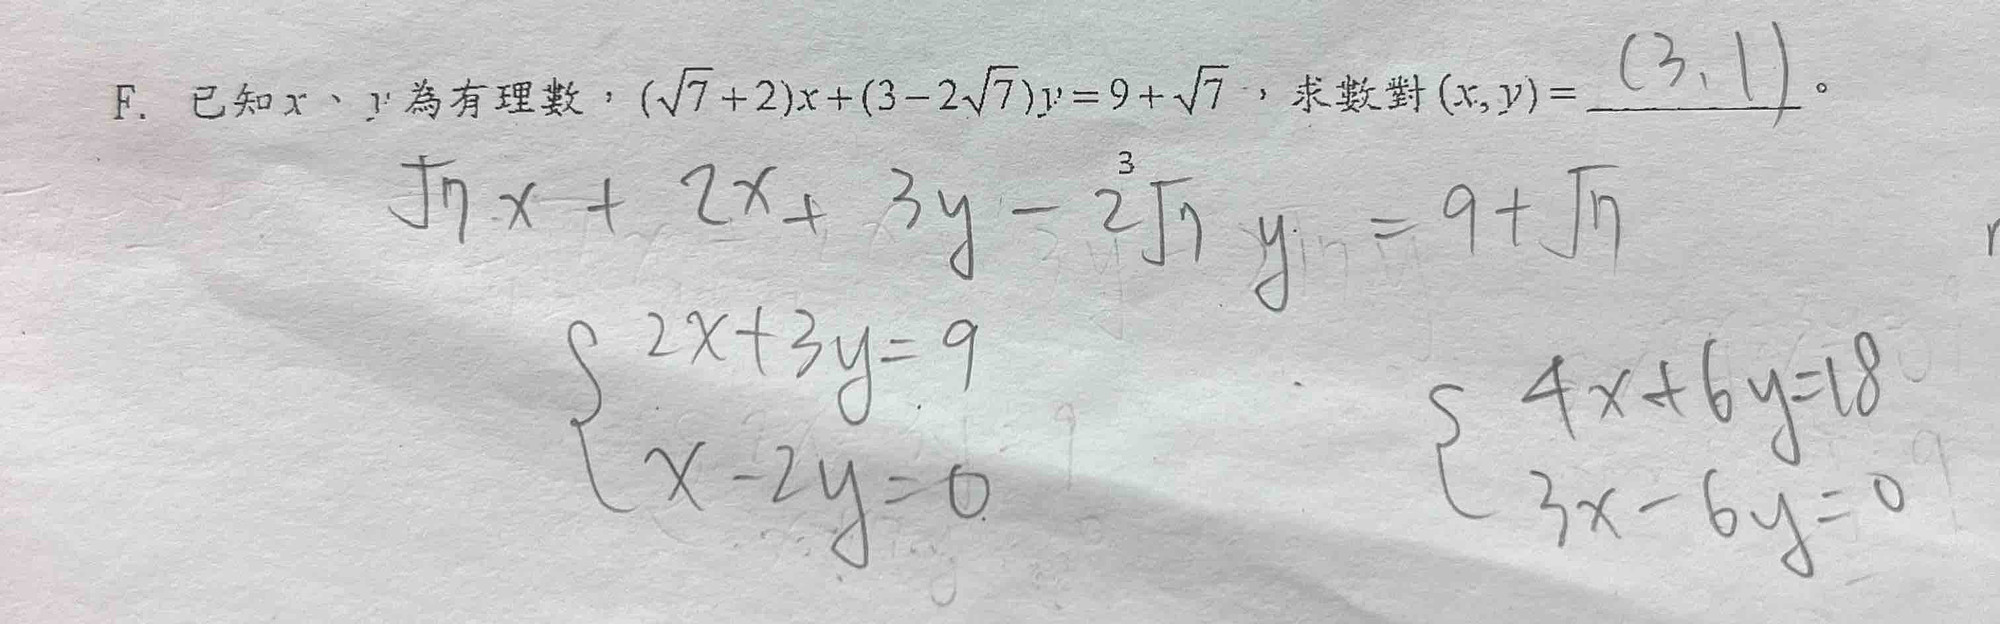 F. 已知x、y為有理數，(√7+2)x+(3-2√7)y=9+√7，求數對(x,y)=(3,1)。
√7x+2x+3y-2³√7y=9+√7
{2x+3y=9 {4x+6y=18
x-2y=0 3x-6y=0